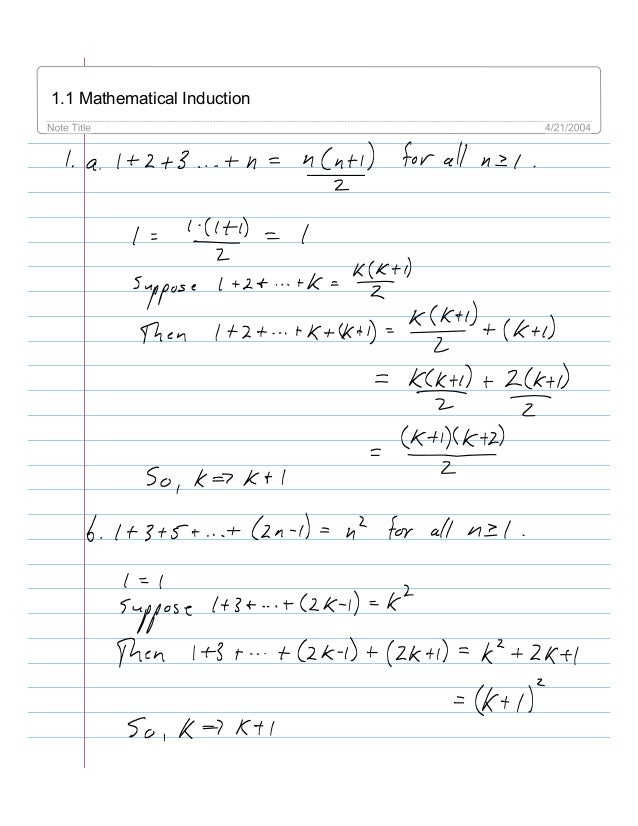 1.1 Mathematical Induction
Note Title 4/21/2004
1. a. 1+2+3...+n = n(n+1)/2 for all n≥1.
1 = 1·(1+1)/2 = 1
Suppose 1+2+...+K = K(K+1)/2
Then 1+2+...+K+(K+1) = K(K+1)/2 + (K+1)
= K(K+1)/2 + 2(K+1)/2
= (K+1)(K+2)/2
So, K ⇒ K+1
b. 1+3+5+...+(2n-1) = n² for all n≥1.
1 = 1
Suppose 1+3+...+(2K-1) = K²
Then 1+3+...+(2K-1)+(2K+1) = K²+2K+1
= (K+1)²
So, K ⇒ K+1